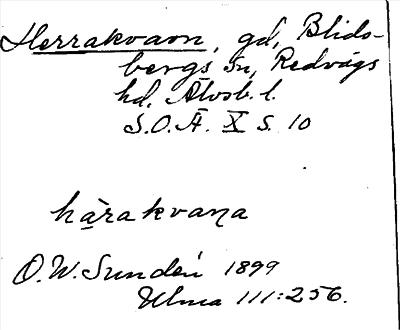 Herrakvarn, gd, Blids-
bergs sn, Redvägs
hd, Älvsb. l.
S.O.Ä. X s. 10
hàrakvaṇa
O.W. Sundén 1899
Ulma 111:256.